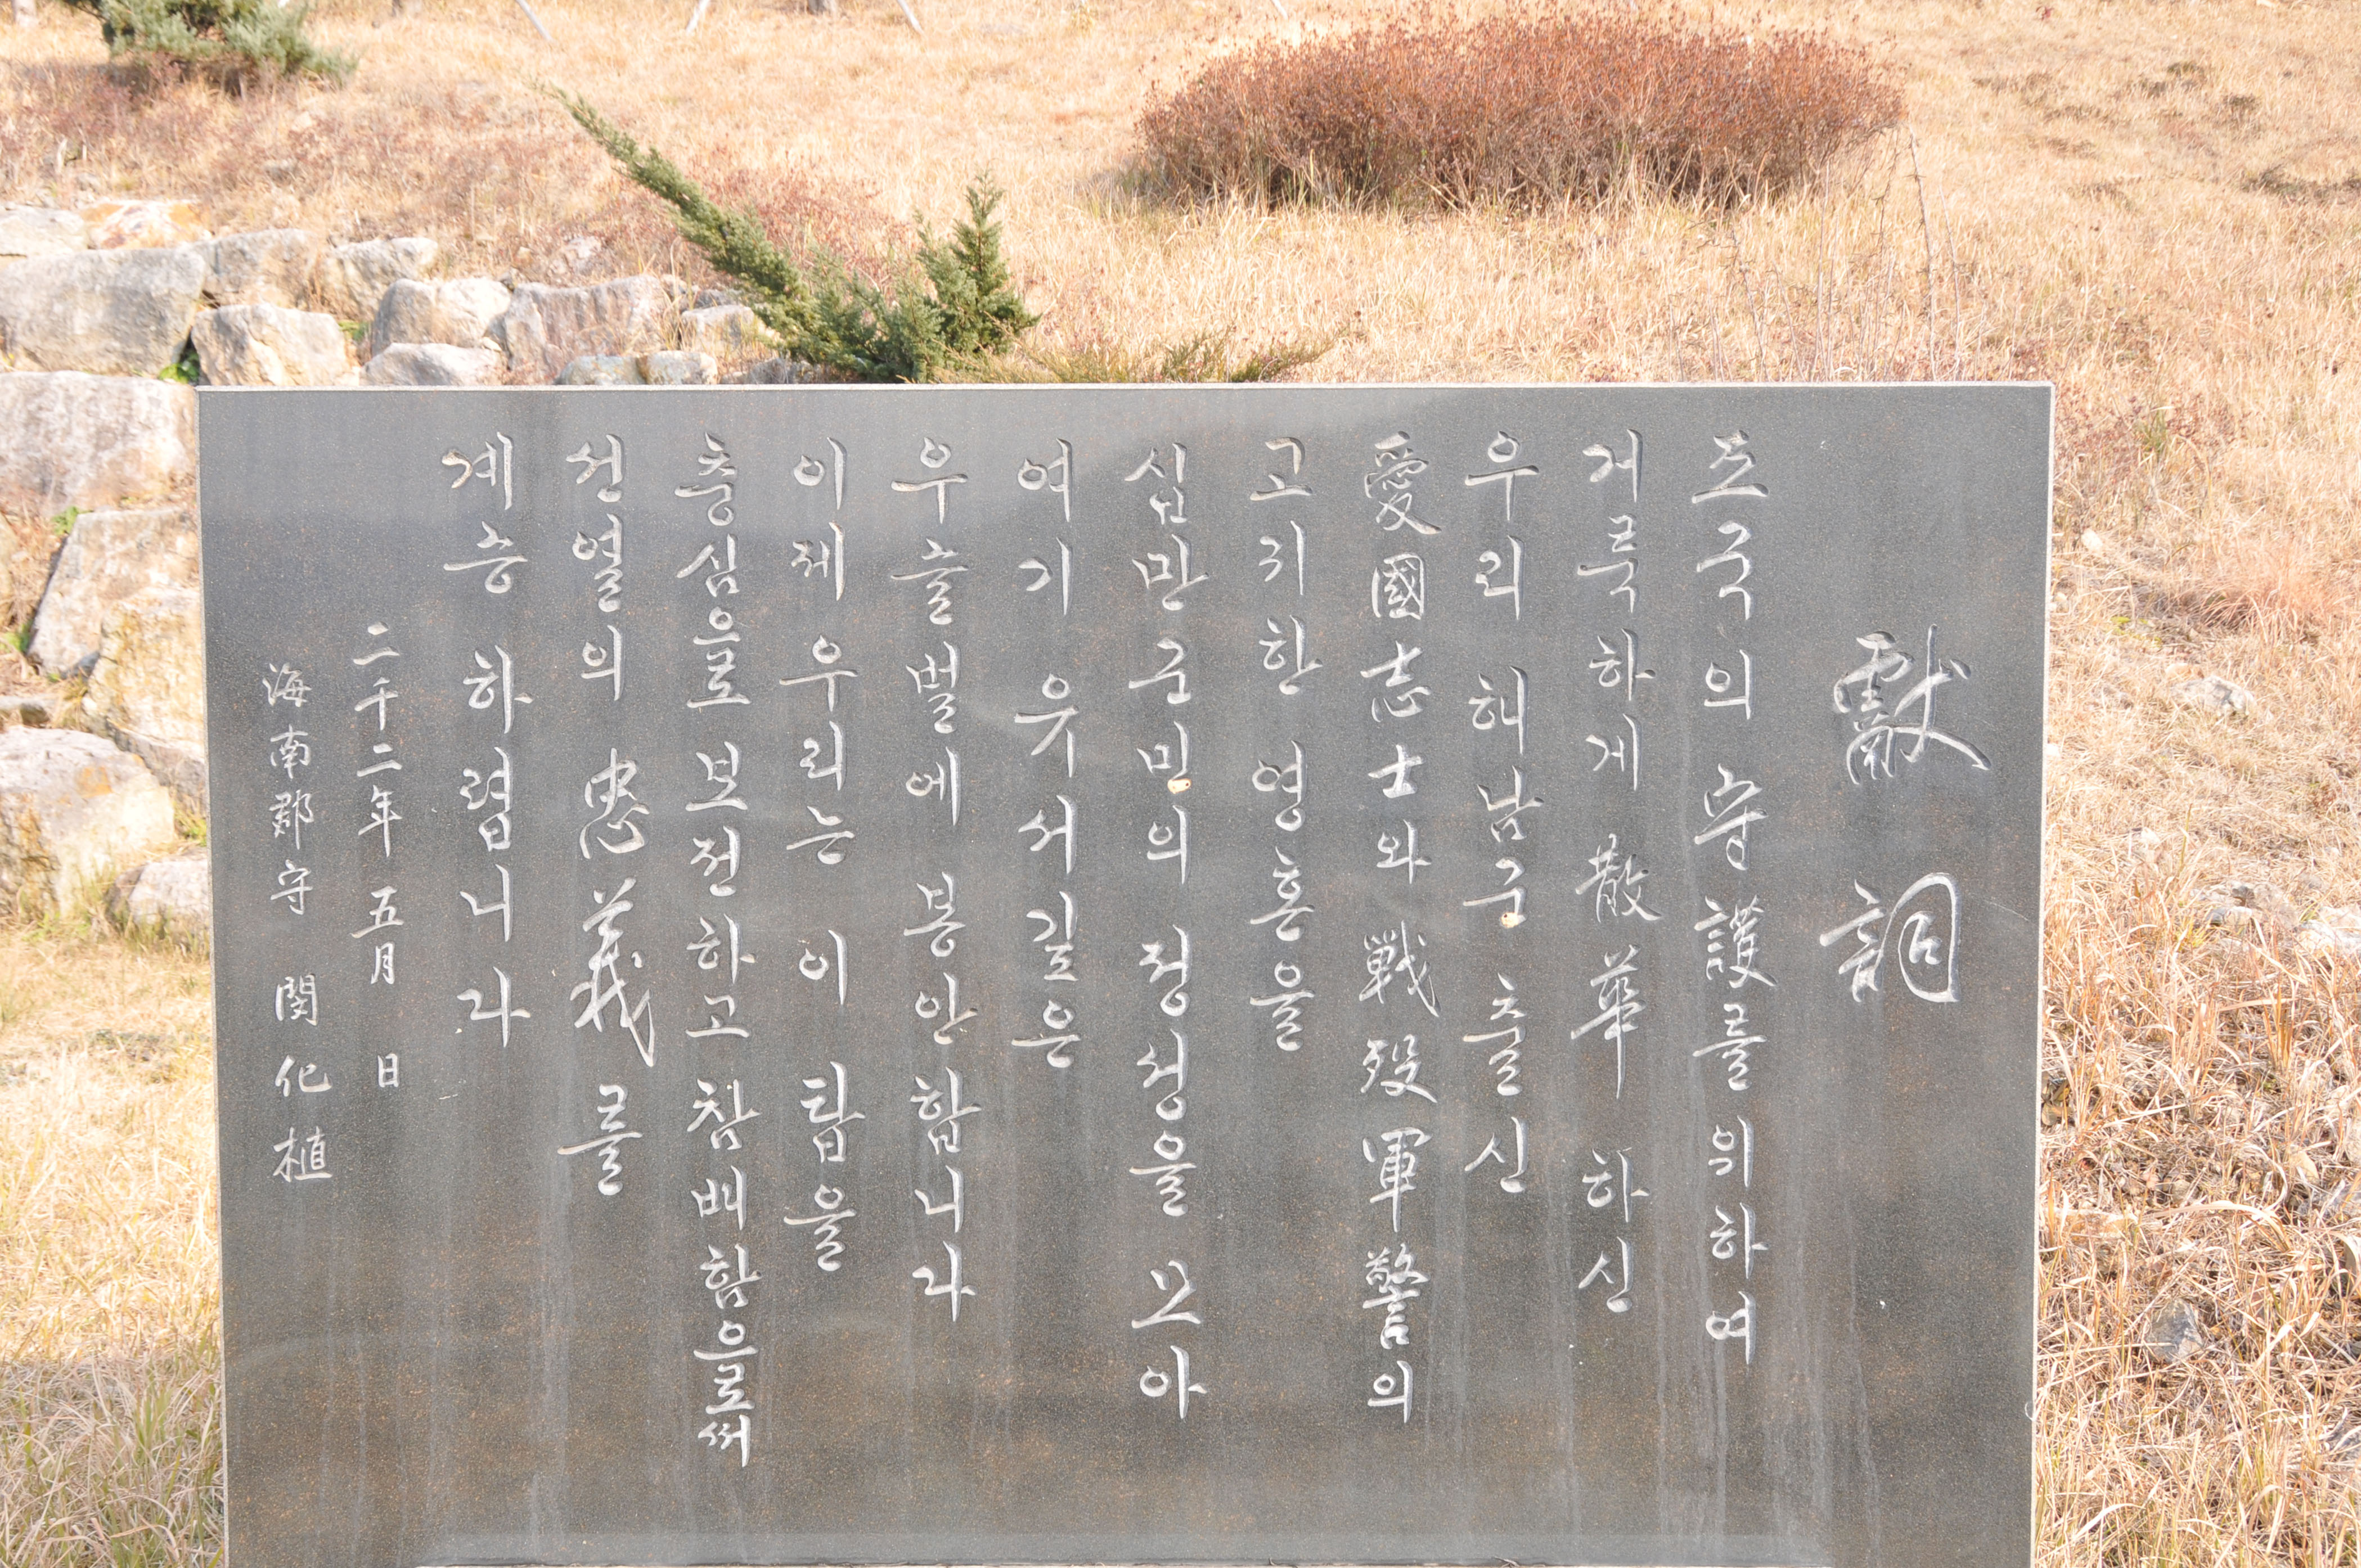 獻詞
조국의 守護를 위하여
거룩하게 散華 하신
우리 해남군 출신
愛國志士와 戰歿軍警의
고귀한 영혼을
십만군민의 정성을 모아
여기 유서깊은
우슬벌에 봉안합니다
이제 우리는 이 탑을
충심으로 보전하고 참배함으로써
선열의 忠義를
계승 하렵니다
二千二年 五月 日
海南郡守 閔化植